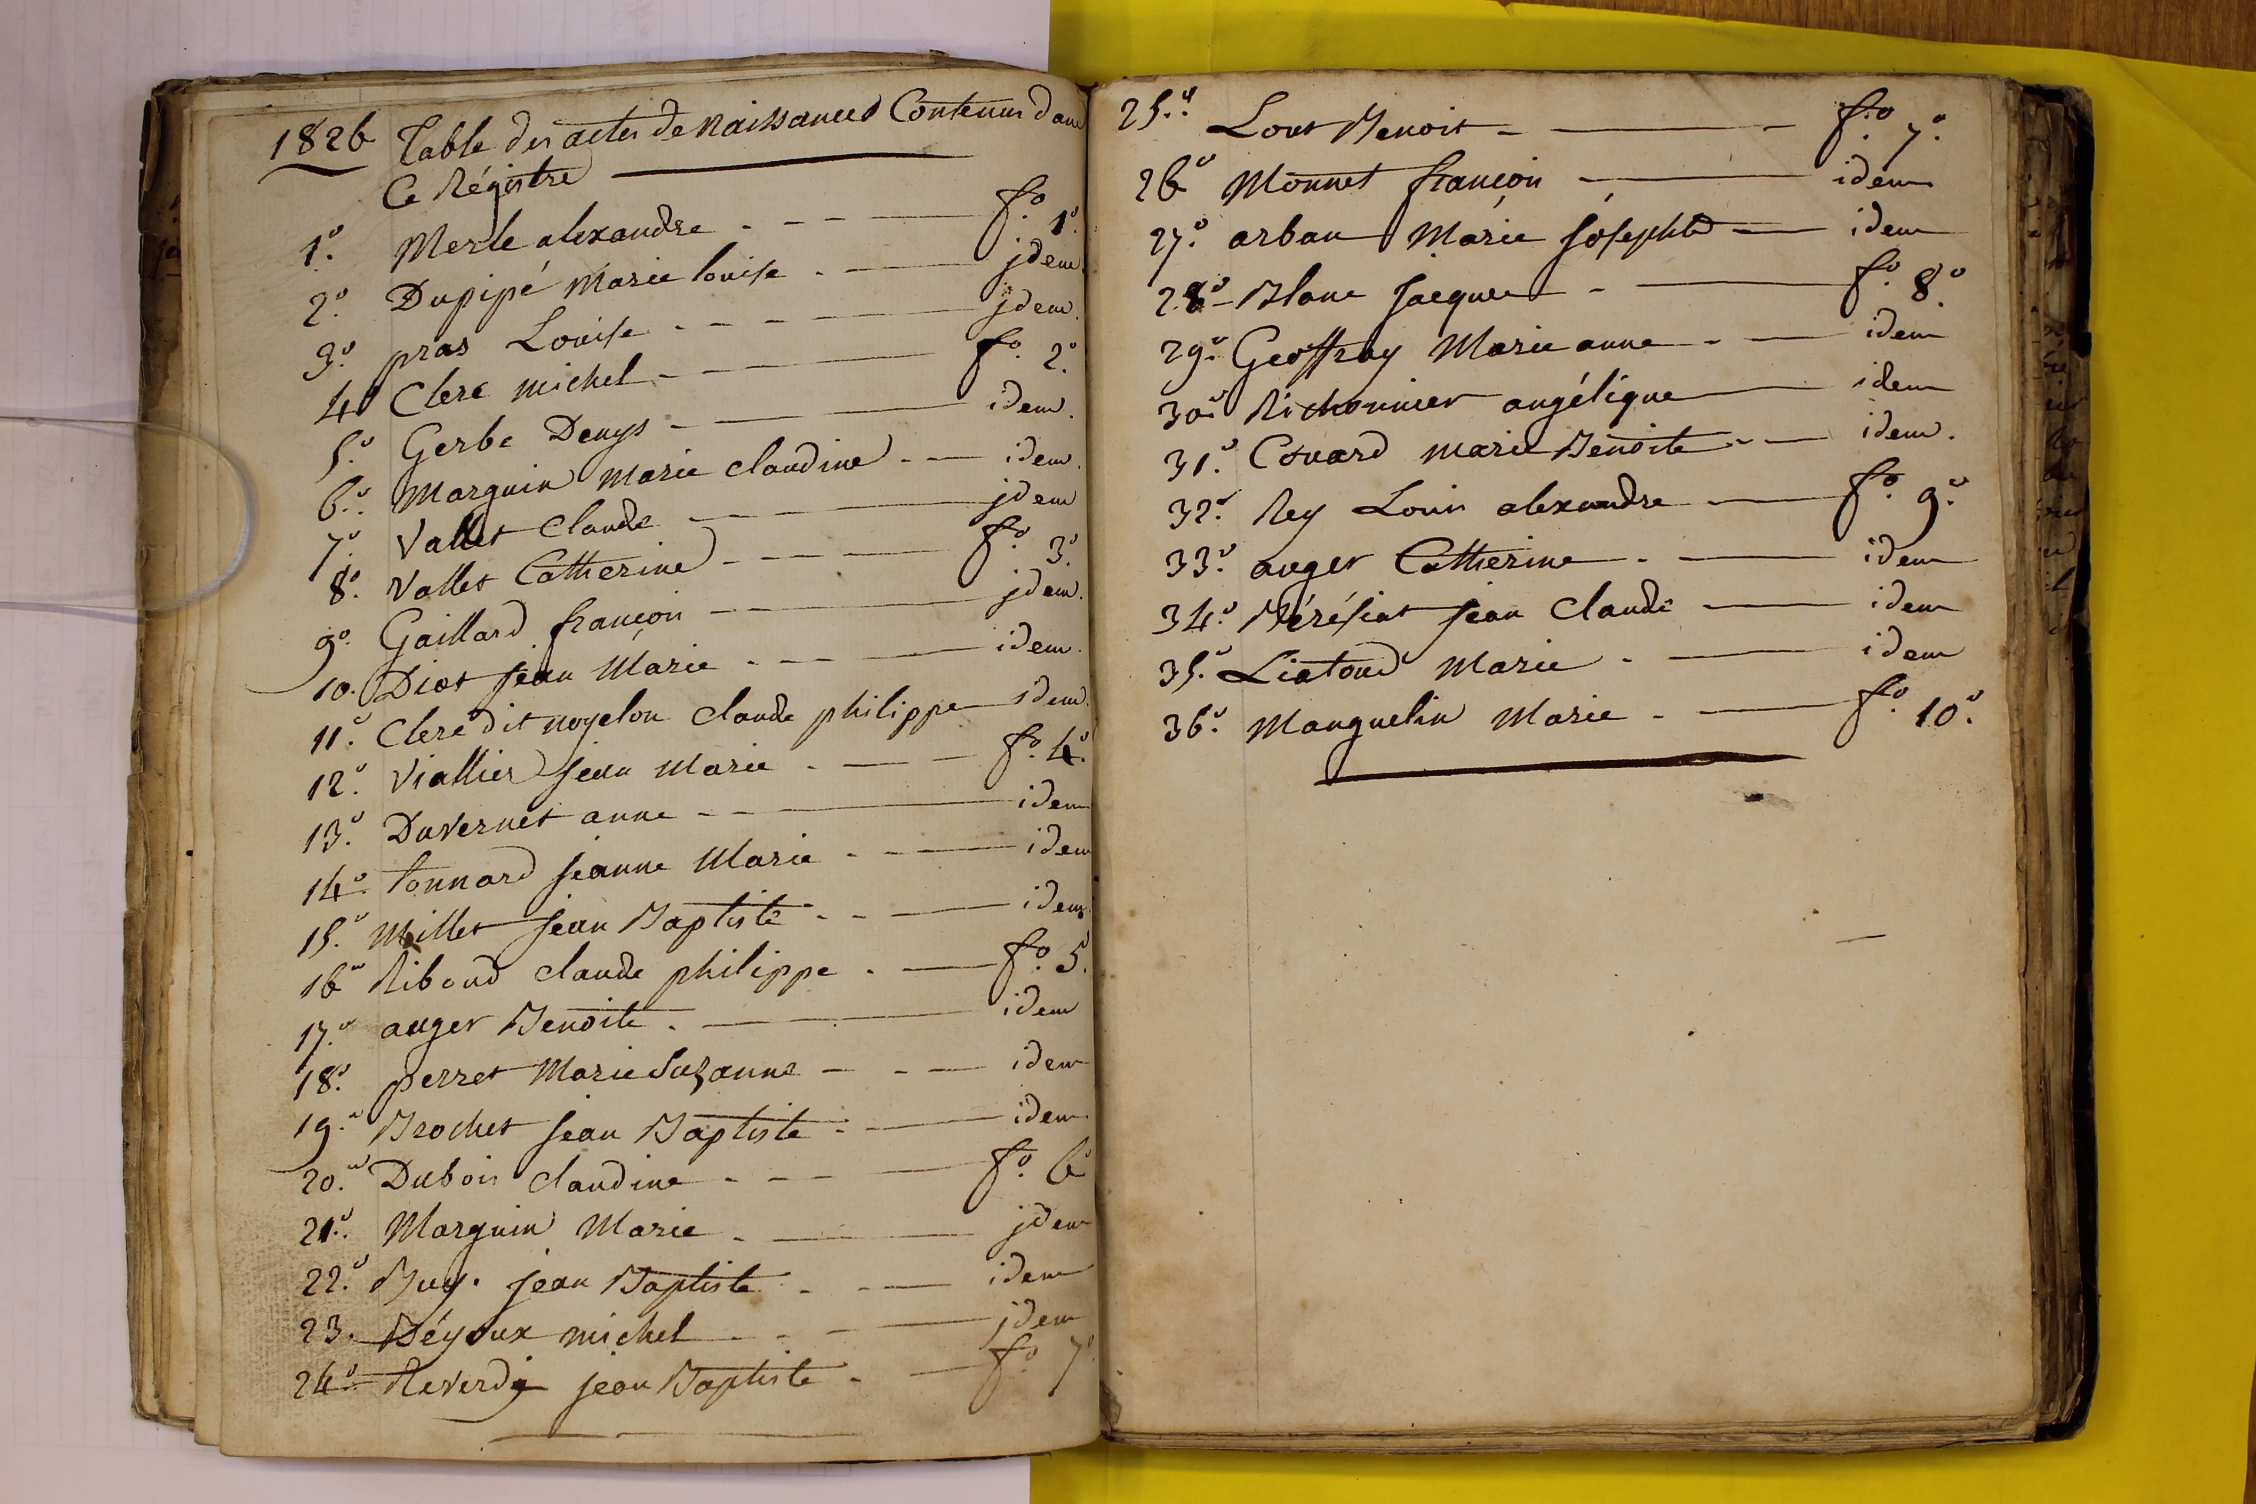 1826 Table des actes de naissances Contenus dans
Ce Régistre
1.° Merle alexandre f.° 1.°
2.° Dupipé Marie louise jdem.
3.° pras Louise jdem.
4.° Clerc michel f.° 2.°
5.° Gerbe Denys idem.
6.° Marguin Marie claudine idem.
7.° Vallet Claude jdem
8.° Vallet Catherine f.° 3.°
9.° Gaillard françois jdem.
10. Diot jean Marie idem.
11.° Clerc dit noyelon Claude philippe idem.
12.° Viallier jean Marie f.° 4.°
13.° Duvernet anne idem
14.° tonnard jeanne Marie idem
15.° Millet jean Baptiste idem
16.° Riboud claude philippe f.° 5.
17.° auger Benoite idem
18.° perret Marie Suzanne idem
19.° Brochet jean Baptiste idem
20.° Dubois claudine f.° 6.°
21.° Marguin Marie jdem
22.° Buy. jean Baptiste idem
23. Déyoux michel jdem
24.° Reverdy jean Baptiste f.° 7.°
25.° Lout Benoit f.° 7.°
26.° Monnet françois idem
27.° arban Marie josephte idem
28.° Blanc jacques f.° 8.°
29.° Geoffray Marie anne idem
30.° Richonnier angélique idem
31.° Couard marie Benoite idem.
32.° Rey Louis alexandre f.° 9.°
33.° auger Catherine idem
34.° Béréziat jean Claude idem
35.° Liatoud Marie idem
36.° Manguelin Marie f.° 10.°